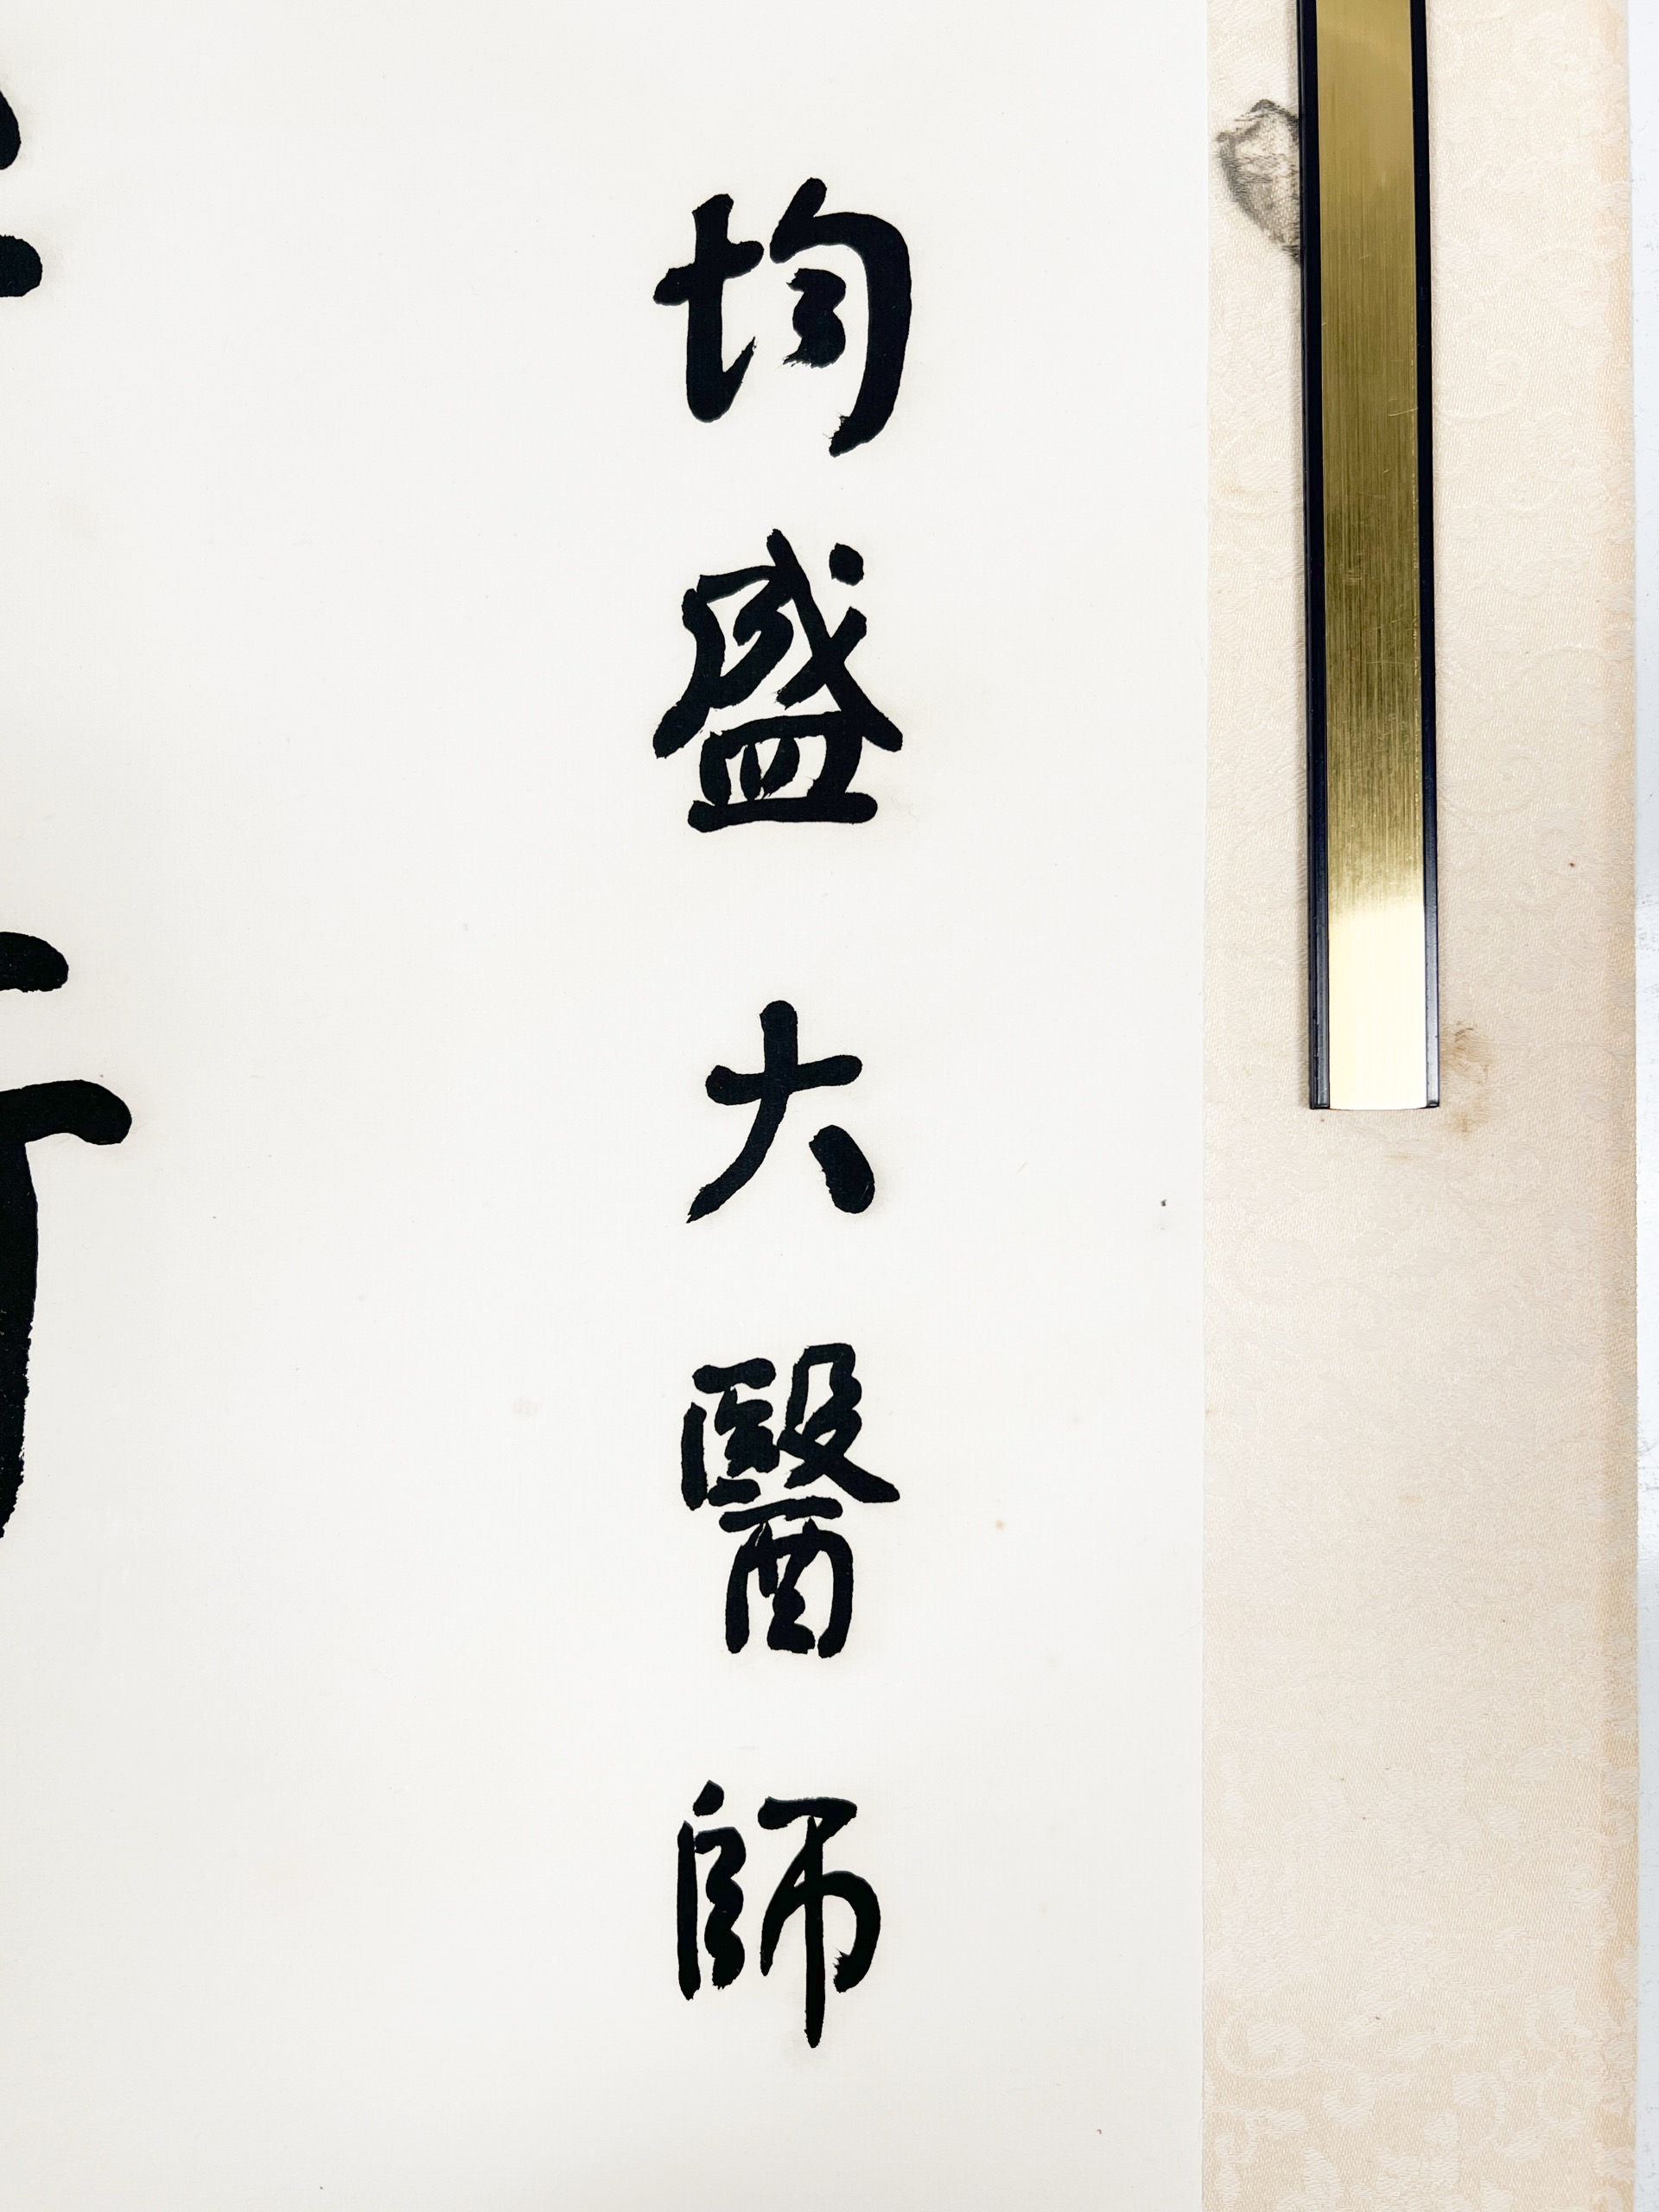 均盛大醫師